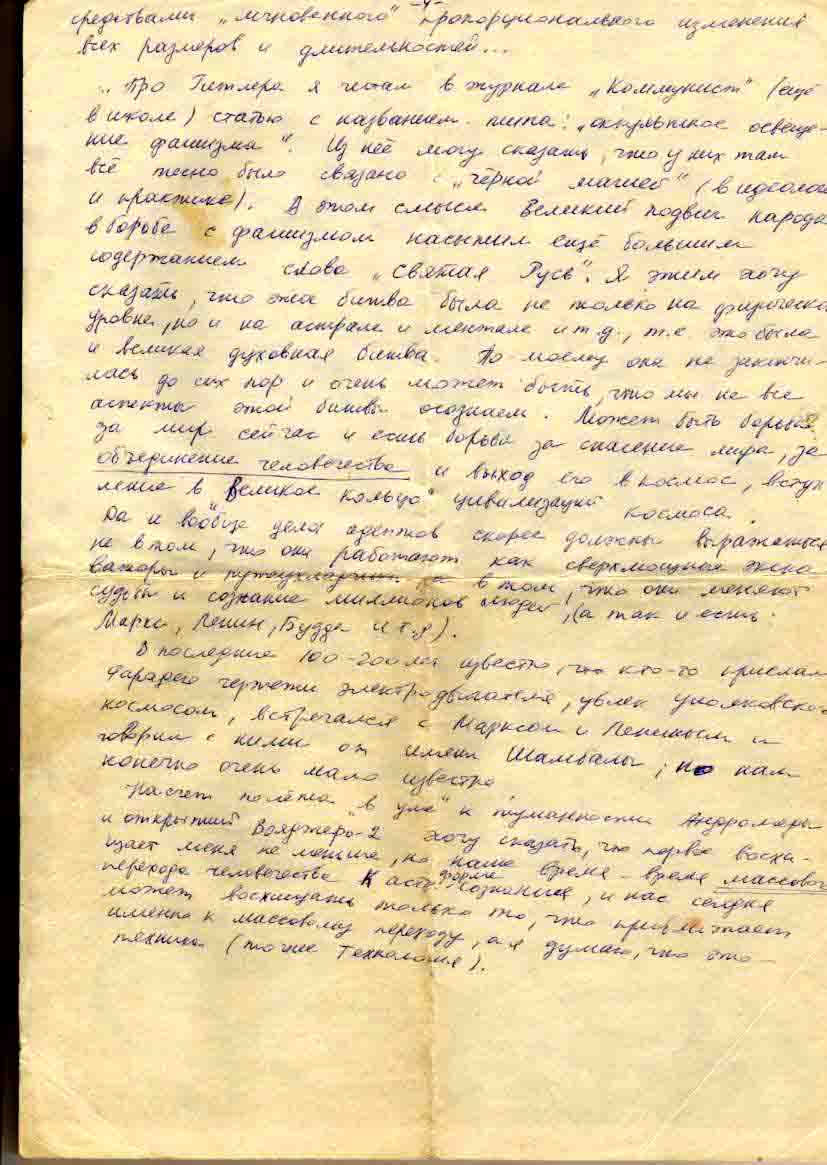 -4-
средствами „мгновенного" пропорционального изменения
всех размеров и длительностей...
„Про Гитлера я читал в журнале „Коммунист" (ещё
в школе) статью с названием типа: „оккультное освеще-
ние фашизма". Из неё могу сказать, что у них там
всё тесно было связано с „чёрной магией" (в идеолог
и практике). В этом смысле Великий подвиг народа
в борьбе с фашизмом насытил ещё большим
содержанием слова „Святая Русь". Я этим хочу
сказать, что эта битва была не только на физическо
уровне, но и на астрале и ментале и т.д., т.е. это была
и великая духовная битва. По-моему она не закончи-
лась до сих пор и очень может быть, что мы не все
аспекты этой битвы осознаем. Может быть борьба
за мир сейчас и есть борьба за спасение мира, за
объединение человечества и выход его в космос, вступ
ление в „Великое кольцо" цивилизаций космоса.
Да и вообще дела адептов скорее должны выражаться
не в том, что они работают как сверхмощные экска
ваторы и а в том, что они меняют
судьбы и сознание миллионов людей, (а так и есть:
Маркс, Ленин, Будда и т.д).
В последние 100-200 лет известно, что кто-то присылал
Фарадею чертежи электродвигателя, увлек Циолковского
космосом, встречался с Марксом и Лениным и
говорил с ними от имени Шамбалы, но нам
конечно очень мало известно.
Насчет полёта „в уме" к туманности Андромеды
и открытий Вояджера-2 хочу сказать, что первое восхи-
щает меня не меньше, но наше время - время массового
перехода человечества к астр. форме сознания, и нас сегодня
может восхищать только то, что приближает
именно к массовому переходу, а я думаю, что это -
техника (точнее Технология).